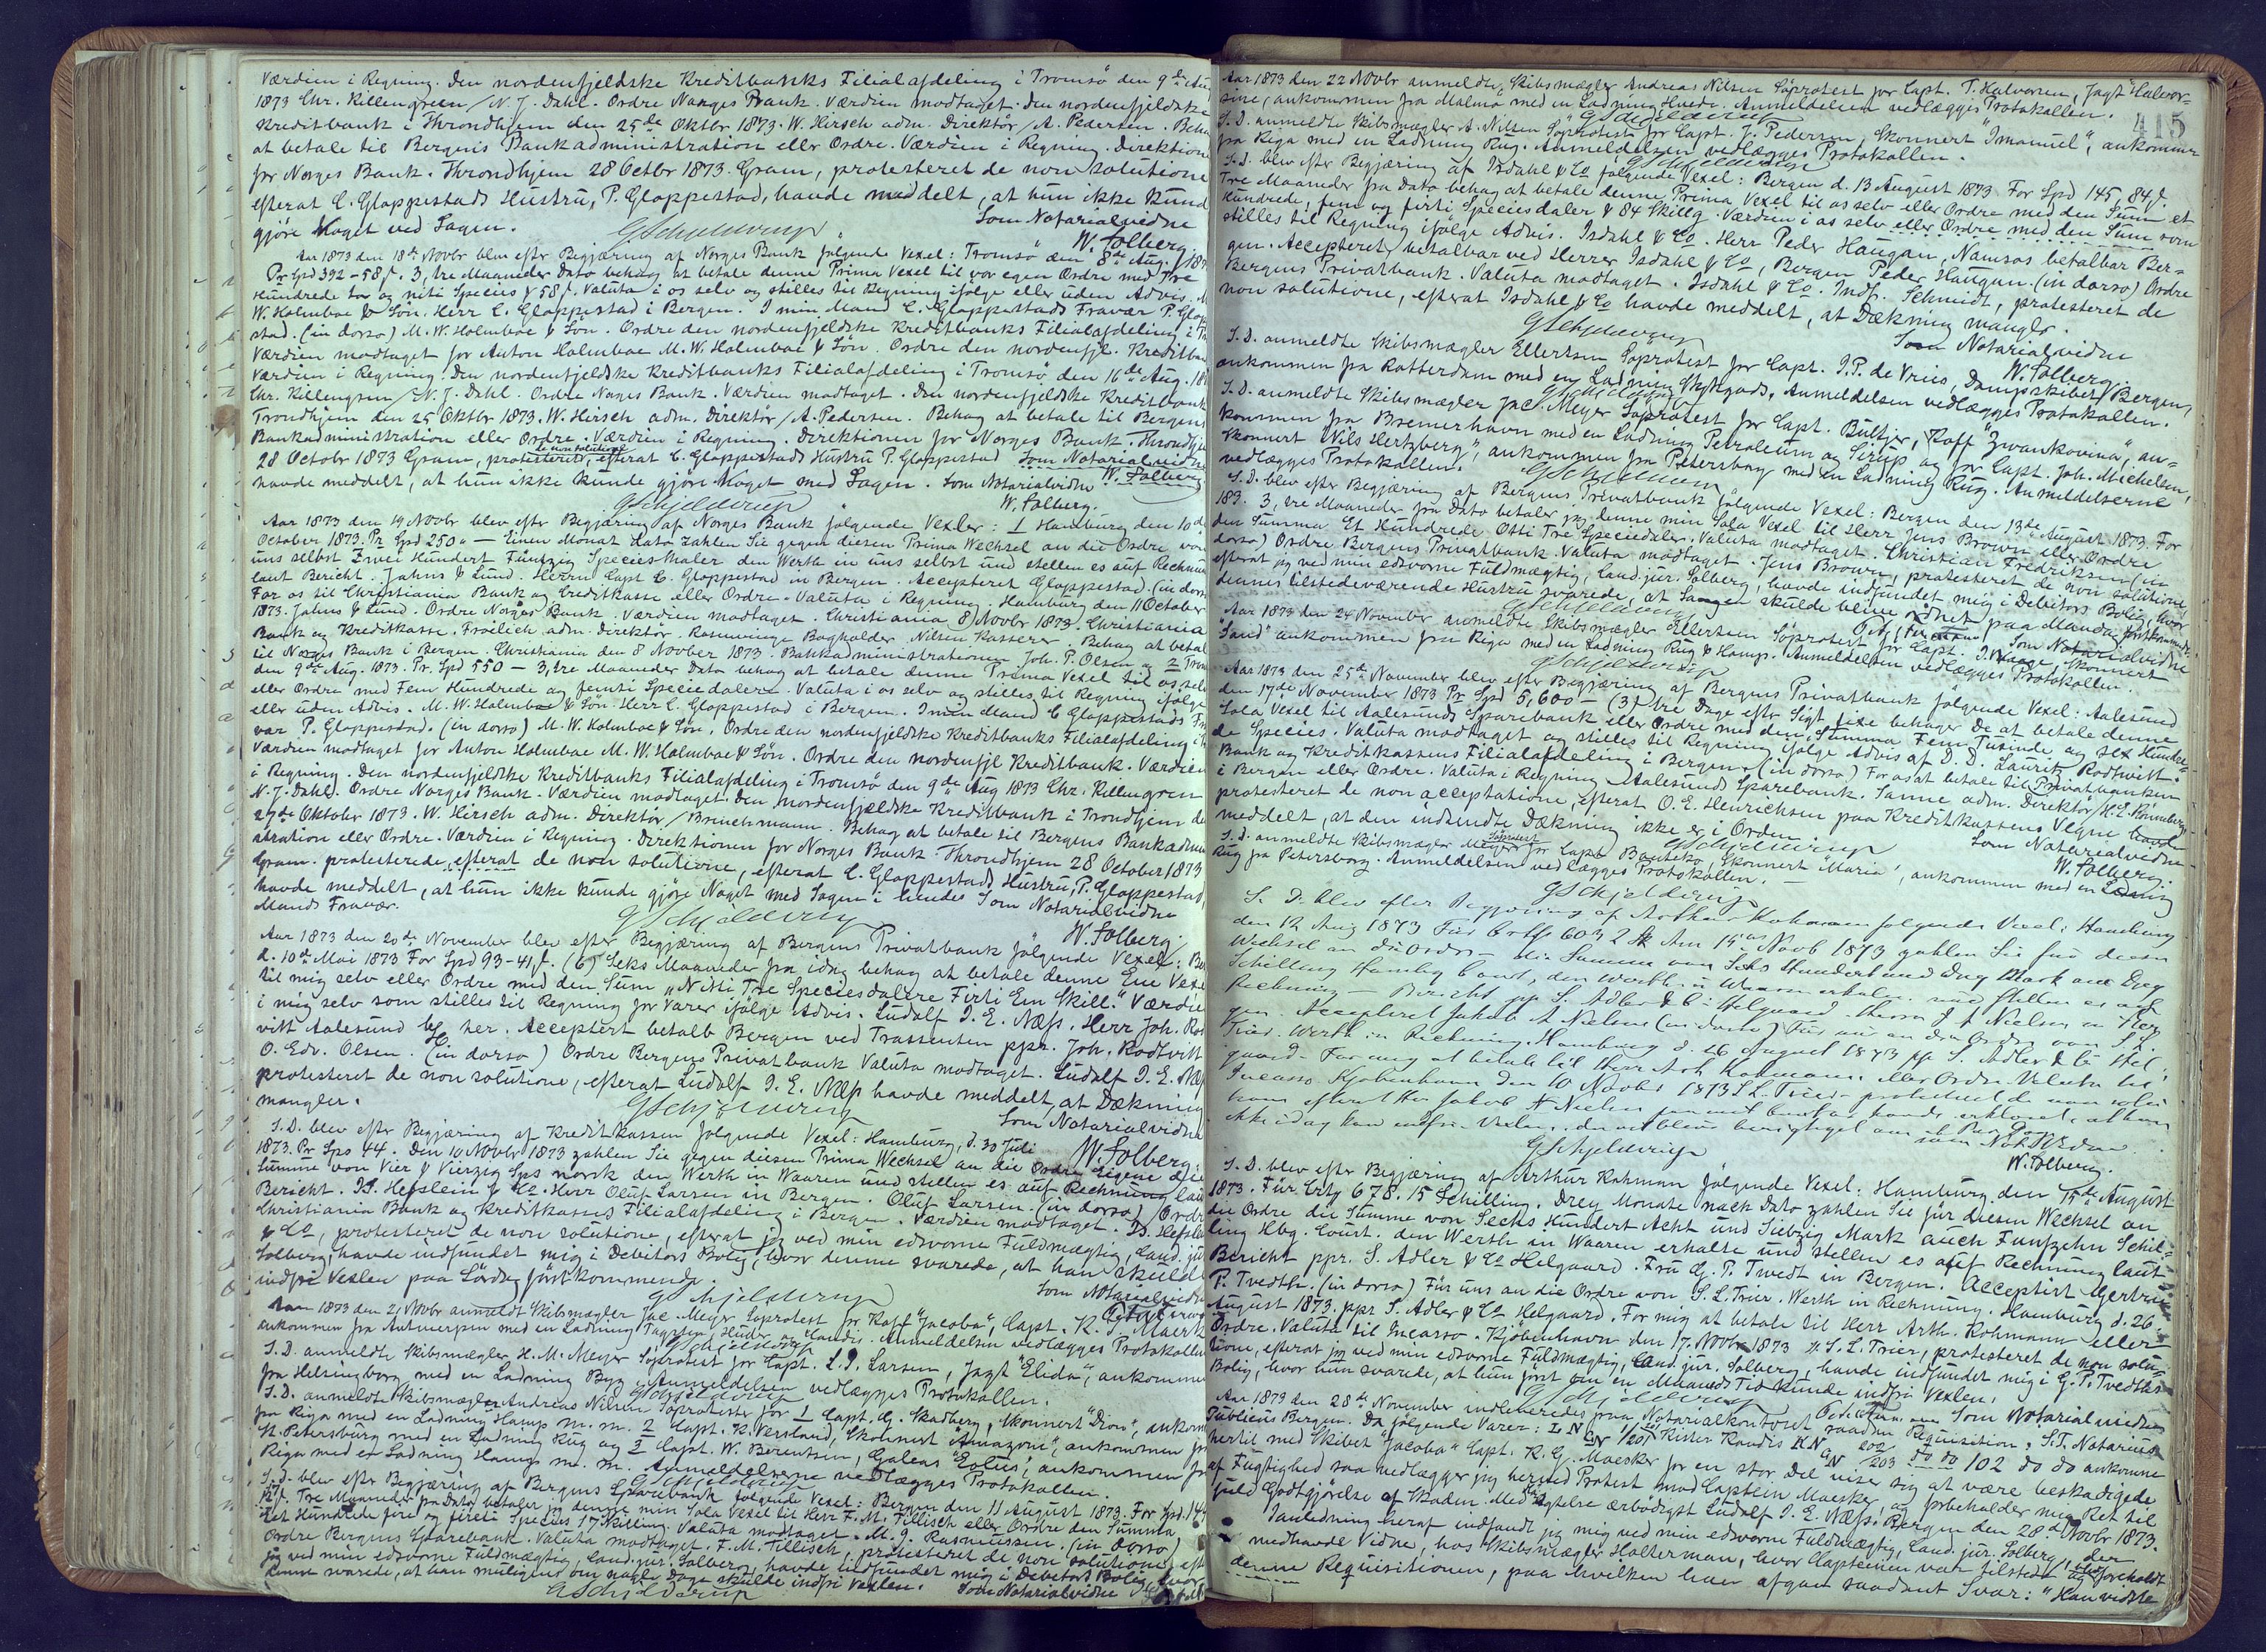 Værdien i Regning. Den nordenfjeldske Kreditbanks Filialafdeling i Tromsö den 9de Aug
1873 Chr. Killengreen / N. J. Dahl. Ordre Norges Bank. Værdien modtaget. Den nordenfjeldske
Kreditbank i Throndhjem den 25de Oktbr 1873. W. Hirsch adm. Direktör / A. Pedersen. Behag
at betale til Bergens Bankadministration eller Ordre. Værdien i Regning. Direktionen
for Norges Bank. Throndhjem 28 Octbr 1873. Gram, protesteret de non solutione
efterat C. Gloppestads Hustru, P. Gloppestad, havde meddelt, at hun ikke kunde
gjöre Noget ved Sagen.
Som Notarialvidne
GSchjelderup
W. Solberg.
Aar 1873 den 18de Novbr blev efter Begjæring af Norges Bank fölgende Vexel: Tromsö den 8de Aug. 187
Pr Spd 392 - 58 ß. 3, tre Maaneder Dato behag at betale denne Prima Vexel til vor egen Ordre med Tre
Hundrede to og niti Species & 58 ß. Valuta i os selv og stilles til Regning ifölge eller uden Advis. M.
W. Holmboe & Sön. Herr C. Gloppestad i Bergen. I min Mand C. Gloppestads Fravær P. Glop
stad. (in dorso) M. W. Holmboe & Sön. Ordre den nordenfjeldske Kreditbanks Filialafdeling i Tr
Værdien modtaget for Anton Holmboe M. W. Holmboe & Sön. Ordre den nordenfjl. Kreditbank
Værdien i Regning. Den nordenfjeldske Kreditbanks Filialafdeling i Tromsö den 16de Aug. 18
Chr. Killengreen / N. J. Dahl. Ordre Norges Bank. Værdien modtaget. Den nordenfjeldske Kreditbank
Trondhjem den 25 Oktbr 1873. W. Hirsch adm. Direktör / A. Pedersen. Behag at betale til Bergens
Bankadministration eller Ordre. Værdien i Regning. Direktionen for Norges Bank. Throndhjem
28 Octobr 1873 Gram, protesteret de non solutione, efterat C. Gloppestads Hustru P. Gloppestad Som Notarialvidne
havde meddelt, at hun ikke kunde gjöre Noget med Sagen. Som Notarialvidne W. Solberg.
GSchjelderup
W. Solberg.
Aar 1873 den 19 Novbr blev efter Begjæring af Norges Bank fölgende Vexler: 1 Hamburg den 10de
October 1873. Pr Spd 250 " — Einen Monat dato zahlen Sie gegen diesen Prima Wechsel an die Ordre von
uns selbst Zwei Hundert Fünfzig Speciesthaler den Werth in uns selbst und stellen es auf Rechnung
laut Bericht. Jahns & Lund. Herrn Capt C. Gloppestad in Bergen. Accepteret Gloppestad. (in dorso)
For os til Christiania Bank og Creditkasse eller Ordre. Valuta i Regning. Hamburg den 11 October
1873. Jahns & Lund. Ordre Norges Bank. Værdien modtaget. Christiania 8 Novbr 1873. Christiania
Bank og Kreditkasse. Frölich adm. Direktör. Rosmunge Bogholder Nilsen Kasserer. Behag at betal
til Norges Bank i Bergen. Christiania den 8 Novber 1873. Bankadministrationen Joh. P. Olsen og 2 Trom
den 9de Aug. 1873. Pr. Spd 550 — 3, tre Maaneder Dato behag at betale denne Prima Vexel til os selv
eller Ordre med Fem Hundrede og femti Speciedalere. Valuta i os selv og stilles til Regning ifölge
eller uden Advis. M. W. Holmboe & Sön. Herr C. Gloppestad i Bergen. I min Mand C Gloppestads Fra
vær P. Gloppestad. (in dorso) M. W. Holmboe & Sön. Ordre den nordenfjeldske Kreditbanks Filialafdeling i
Værdien modtaget for Anton Holmboe M. W. Holmboe & Sön. Ordre den nordenfjl Kreditbank. Værdien
i Regning. Den nordenfjeldske Kreditbanks Filialafdeling i Tromsö den 9de Aug 1873 Chr. Killengreen
N. J. Dahl. Ordre Norges Bank. Værdien modtaget. Den nordenfjeldske Kreditbank i Trondhjem de
27de Oktobr 1873. W. Hirsch adm. Direktör / Brinchmann. Behag at betale til Bergens Bankadmin
istration eller Ordre. Værdien i Regning. Direktionen for Norges Bank. Throndhjem 28 October 1873
Gram. protesterede efterat de non solutione, efterat C. Gloppestads Hustru, P. Gloppestad,
havde meddelt, at hun ikke kunde gjöre Noget med Sagen i hendes Som Notarialvidne
Mands Fravær.
GSchjelderup
W. Solberg.
Aar 1873 den 20de November blev efter Begjæring af Bergens Privatbank fölgende Vexel: Ber
d. 10de Mai 1873 For Spd 93-41 ß. (6) Seks Maaneder fra idag behag at betale denne Ene Vexel
til mig selv eller Ordre med den Sum „Nitti Tre Speciesdalere Firti Em Skill." Værdien
i mig selv som stilles til Regning for Varer ifölge Advis. Ludolf J. E. Næss. Herr Joh. Rod
vitt Aalesund her. Acceptert betalb Bergen ved Trassenten ppr. Joh. Rodtvitt
O. Edv. Olsen. (in dorso) Ordre Bergens Privatbank Valuta modtaget. Ludolf J. E. Næss
protesteret de non solutione, efterat Ludolf J. E. Næss havde meddelt, at Dækning
mangler.
GSchjelderup
Som Notarialvidne
W. Solberg.
S. D. blev efter Begjæring af Kreditkassen fölgende Vexel: Hamburg, d. 30 Juli
1873. Pr Sps 44. Den 10 Novbr 1873 zahlen Sie gegen diesen Prima Wechsel an die Ordre Eigene die
Summe von Vier & Vierzig Sps norsk den Werth in Waaren und stellen es auf Rechnung laut
Bericht. B. Hesslein & Co. Herr Oluf Larsen in Bergen. Oluf Larsen. (in dorso) Ordre
Christiania Bank og Kreditkasses Filialafdeling i Bergen. Værdien modtaget. B. Hesslein
& Co, protesteret de non solutione, efterat jeg ved min edsvorne Fuldmægtig, Cand. jur
Solberg, havde indfundet mig i Debitors Bolig, hvor denne svarede, at han skulde
indfri Vexlen paa Lördag förstkommende.
GSchjelderup
Som Notarialvidne
Aar 1873 den 21 Novbr anmeldt Skibsmægler Jac. Meyer Söprotest for Koff "Jacoba", Capt. K. G. Maesker
ankommen fra Antwerpen med en Ladning Huder og Candis. Anmeldelsen vedlægges Protokollen
GSchjelderup
S. D. anmeldte Skibsmægler H. M. Meyer Söprotest for Capt. L. J. Larsen, Jagt "Elida", ankommen
fra Helsingborg med en Ladning Byg. Anmeldelsen vedlægges Protokollen.
GSchjelderup
S. D. anmeldte Skibsmægler Andreas Nilsen Söprotester for 1 Capt. G. Skadberg, Skonnert "Dron", ankom
fra Riga med en Ladning Hamp m. m. 2 Capt. K. Versland, Skonnert "Amazone", ankommen fra
St. Petersburg med en Ladning Rug og 3 Capt. W. Berentsen, Galeas "Eolus", ankommen fra
Riga med en Ladning Hamp m. m. Anmeldelserne vedlægges Protokollen.
GSchjelderup
S. D. blev efter Begjæring af Bergens Sparebank fölgende Vexel: Bergen den 11 August 1873. For Spd. 144
17 ß. Tre Maaneder fra Dato betaler jeg denne min Sola Vexel til Herr F. M. Tillisch eller Ordre den Summa
Et Hundrede fire og fireti Species 17 Skilling. Valuta modtaget. M. J. Rasmussen. (in dorso)
Ordre Bergens Sparebank. Valuta modtaget. F. M. Tillisch, protesteret de non solutione, eft
jeg ved min edsvorne Fuldmægtig, Cand. jur. Solberg, havde indfundet mig i Debitors Bolig, hvor
denne svarede, at han muligens om nogle Dage skulde indfri Vexlen. Som Notarialvidne
GSchjelderup
415
Aar 1873 den 22 Novbr anmeldte Skibsmægler Andreas Nilsen Söprotest for Capt. T. Halvorsen, Jagt "Halvor-
sine", ankommen fra Malmö med en Ladning Hvede. Anmeldelsen vedlægges Protokollen.
GSchjelderup
S. D. anmeldte Skibsmægler A. Nilsen Söprotest for Capt. J. Pedersen, Skonnert "Imanuel", ankommen
fra Riga med en Ladning Rug. Anmeldelsen vedlægges Protokollen.
GSchjelderup
S. D. blev efter Begjæring af Isdahl & Co fölgende Vexel: Bergen d. 13 August 1873. For Spd 145, 84 ß.
Tre Maaneder fra Dato behag at betale denne Prima Vexel til os selv eller Ordre med den Sum et
Hundrede, fem og firti Speciesdaler & 84 Skillg. Værdien i os selv eller Ordre med den Sum som
stilles til Regning ifölge Advis. Isdahl & Co. Herr Peder Haugan, Namsos betalbar Ber=
gen. Accepteret betalbar ved Herrer Isdahl & Co, Bergen Peder Haugan. (in dorso) Ordre
Bergens Privatbank. Valuta modtaget. Isdahl & Co. Indf. Schmidt, protesteret de
non solutione, efterat Isdahl & Co havde meddelt, at Dækning mangler.
GSchjelderup
Som Notarialvidne
W. Solberg.
S. D. anmeldte Skibsmægler Ellertsen Söprotest for Capt. J. P. de Vries, Dampskibet Bergen,
ankommen fra Rotterdam med en Ladning Stykgods. Anmeldelsen vedlægges Protokollen.
GSchjelderup
S. D. anmeldte Skibsmægler Jac. Meyer Söprotest for Capt. Bültjer, Koff "Zwankovina", an=
kommen fra Bremerhavn med en Ladning Petroleum og Sirup og for Capt. Joh. Michelsen,
Skonnert "Nils Hertzberg", ankommen fra Petersborg med en Ladning Rug. Anmeldelserne
vedlægges Protokollen.
GSchjelderup
S. D. blev efter Begjæring af Bergens Privatbank fölgende Vexel: Bergen den 13de August 1873. For
183. 3, tre Maaneder fra Dato betaler jeg denne min Sola Vexel til Herr Jens Brown eller Ordre
den Summa Et Hundrede Otti Tre Speciedaler. Valuta modtaget. Christian Fredriksen (in
dorso) Ordre Bergens Privatbank. Valuta modtaget. Jens Brown, protesteret de non solutione,
efterat jeg ved min edsvorne Fuldmægtig, Cand. jur. Solberg, havde indfundet mig i Debitors Bolig, hvor
dennes tilstedeværende Hustru svarede, at Sagen skulde blive ordnet paa Mandag förstkommende.
GSchjelderup
Som Notarialvidne
Aar 1873 den 24 November anmeldte Skibsmægler Ellertsen Söprotest for Capt. J. Haage, Skonnert
"Sand" ankommen fra Riga med en Ladning Rug & Hamp. Anmeldelsen vedlægges Protokollen.
GSchjelderup
Aar 1873 den 25de November blev efter Begjæring af Bergens Privatbank fölgende Vexel: Aalesund
den 17de November 1873 Pr Spd 5,600 — (3) tre Dage efter Sigt fixe behager De at betale denne
Sola Vexel til Aalesunds Sparebank eller Ordre med den Summa Fem Tusinde og sex Hundre=
de Species. Valuta modtaget og stilles til Regning ifölge Advis af D. D. Lauritz Rodtvitt.
Bank og Kreditkassens Filialafdeling i Bergen. (in dorso) For os at betale til Privatbanken
i Bergen eller Ordre. Valuta i Regning. Aalesunds Sparebank. Sanne adm. Direktör / K. L. Rönneberg
protesteret de non acceptatione, efterat O. E. Heinrichsen paa Kreditkassens Vegne havde
meddelt, at den indsendte Dækning ikke er i Orden.
GSchjelderup
Som Notarialvidne
W. Solberg.
S. D. anmeldte Skibsmægler Meyer Söprotest for Capt Bouteko, Skonnert "Maria", ankommen med en Ladning
Rug fra Petersborg. Anmeldelsen vedlægges Protokollen.
GSchjelderup
S. D. blev efter Begjæring af Arthur Kohmann følgende Vexel: Hamburg
den 12 Aug 1873 Für Crtß 603 2 ß Am 15 Novb 1873 zahlen Sie für diesen
Wechsel an die Ordre die Summe von Sechs Hundert und drey Mark auch Drey
Schilling Hambg Court, den Werth in Waaren erhalten und stellen es auf
Rechnung — Bericht pp S. Adler & Co Helgaard. Herrn J A Nielsen in Ber
gen. Accepteret Jakob A. Nielsen (in dorso) Für uns an die Ordre von S. L.
Trier. Werth in Rechnung. Hamburg d. 26 August 1873 pp S. Adler & Co Hel
gaard. For mig at betale til Herr Arth Kohmann eller Ordre. Valuta til
Incasso Kjøbenhavn den 10 Novbr 1873 S L. Trier — protesteret de non solu
tione efterat Herr Jakob A Nielsen havde erklæret, at han
ikke idag kan indfri Vexlen,
GSchjelderup
som Not. Vidne
W. Solberg.
S. D. blev efter Begjæring af Arthur Kohman fölgende Vexel: Hamburg den 15de August
1873. Für Crtß 678. 15 Schilling. Drey Monate nach Dato zahlen Sie für diesen Wechsel an
die Ordre die Summe von Sechs Hundert Acht und Siebzig Mark auch Funfzehn Schil=
ling Hbg. Court. den Werth in Waaren erhalte und stellen es auf Rechnung laut
Bericht ppr. S. Adler & Co Helgaard. Fru G. P. Tvedt in Bergen. Acceptirt Gertrude
P. Tvedth. (in dorso) Für uns an die Ordre von S. L. Trier. Werth in Rechnung. Hamburg d. 26.
August 1873. ppr S. Adler & Co Helgaard. For mig at betale til Herr Arth. Kohmann eller
Ordre. Valuta til Incasso. Kjöbenhavn den 17. Novbr 1873 S. L. Trier, protesteret de non solu=
tione, efterat jeg ved min edsvorne Fuldmægtig, Cand. jur. Solberg, havde indfundet mig i G. P. Tvedths
Bolig, hvor hun svarede, at hun först om en Maaneds Tid kunde indfri Vexlen.
GSchjelderup
Som Notarialvidne
Aar 1873 den 28de November indleveredes paa Notarialkontoret saadan Requisition: S. T. Notarius
Publicus Bergen. Da fölgende Varer: L N 1/201 Kister Kandis K N 202/203 do do 102 do do ankomne
hertil med Skibet "Jacoba" Capt. K. G. Maesker for en stor Del viser sig at være beskadigede
af Fugtighed saa nedlægger jeg herved Protest mod Captein Maesker, og forbeholder mig Ret til
fuld Godtgjörelse af Skaden. Med Agtelse ærbödigst Ludolf J. E. Næss. Bergen den 28de Novbr 1873.
I Anledning heraf indfandt jeg mig ved min edsvorne Fuldmægtig, Cand. jur. Solberg, der
medhavde Vidne, hos Skibsmægler Holterman, hvor Capteinen var tilstede og foreholdt
denne Requisitionen, paa hvilken han afgav saadant Svar: "Han vidste